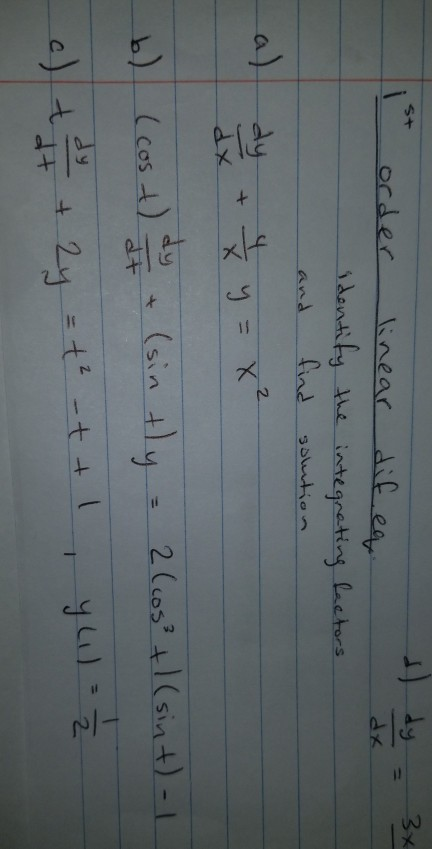 1st order linear dif. eq.
identify the integrating factors
and find solution
a) dy/dx + 4/x y = x²
b) (cos t) dy/dt + (sin t) y = 2(cos³ t)(sin t) - 1
c) t dy/dt + 2y = t² - t + 1 , y(1) = 1/2
d) dy/dx = 3x